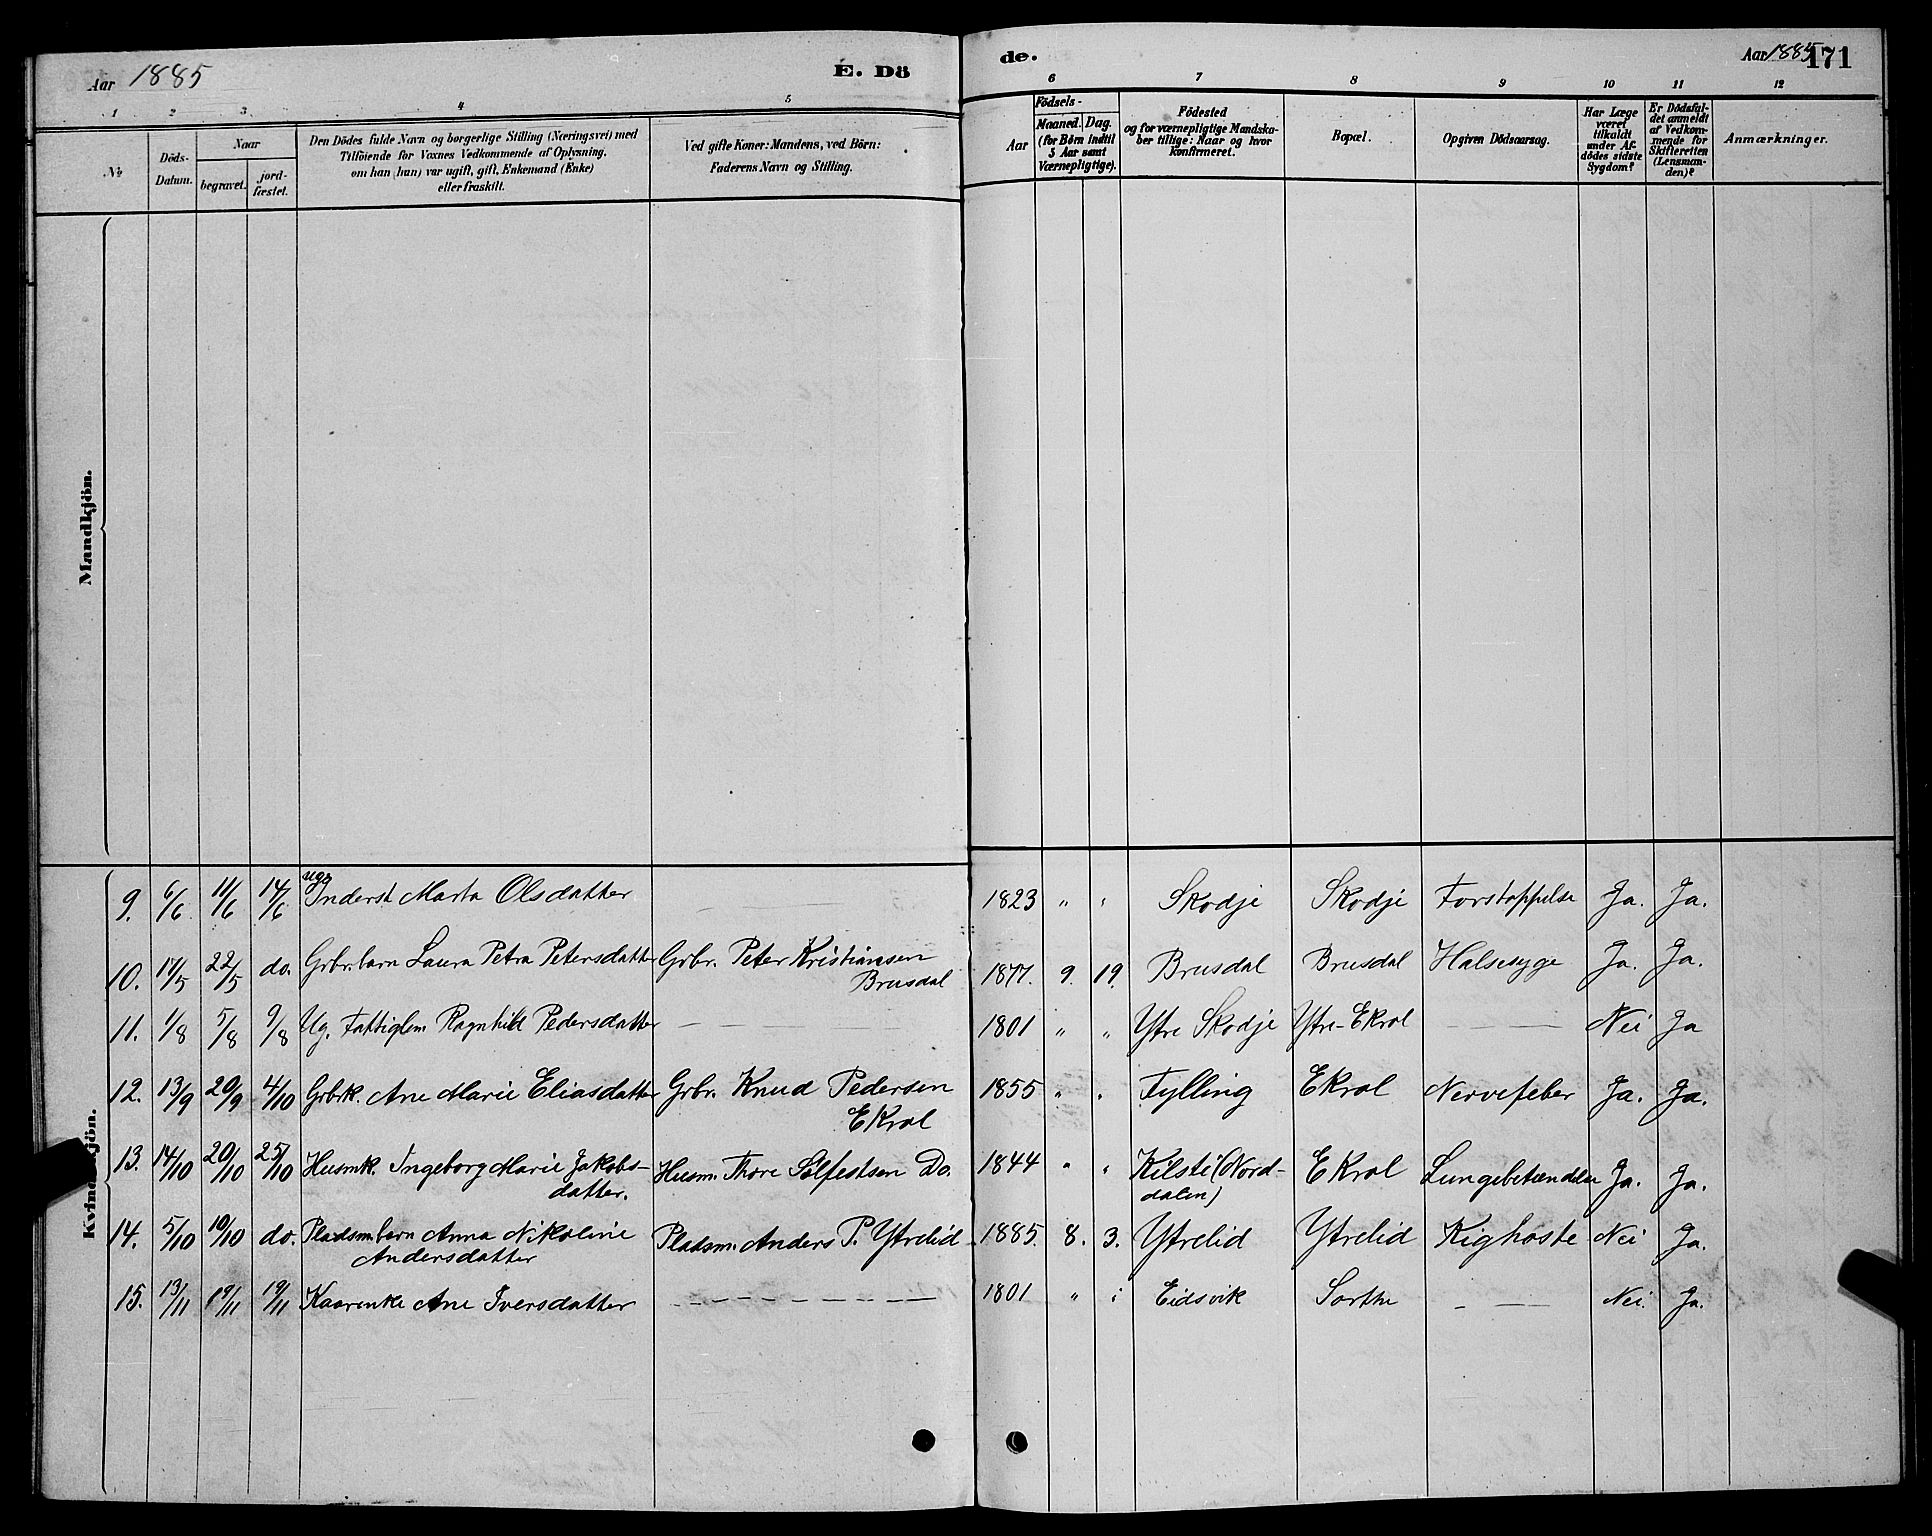 Aar 1885
E. Dö
de.
Aar 1885 171
1 2 3 4 5 6 7 8 9 10 11 12
No
Döds-Datum.
Naar
begravet.
jord-fæstet.
Den Dödes fulde Navn og borgerlige Stilling (Næringsvei) med
Tilföiende for Voxnes Vedkommende af Oplysning,
om han (hun) var ugift, gift, Enkemand (Enke)
eller fraskilt.
Ved gifte Koner: Mandens, ved Börn:
Faderens Navn og Stilling.
Födsels-
Aar
Maaned. Dag.
(for Børn indtil
5 Aar samt
Værnepligtige).
Födested
og for værnepligtige Mandska-
ber tillige: Naar og hvor
konfirmeret.
Bopæl.
Opgiven Dödsaarsag.
Har Læge
været
tilkaldt
under Af-
dödes sidste
Sygdom?
Er Dödsfal-
det anmeldt
af Vedkom-
mende for
Skifteretten
(Lensman-
den)?
Anmærkninger.
Mandkjön.
Kvindekjön.
9. 6/6 11/6 14/6 ugg Inderst Marta Olsdatter — 1823 " " Skodje Skodje Forstoppelse Ja. Ja.
10. 17/5 22/5 do. Grbr.barn Laura Petra Petersdatter Grbr. Peter Kristiansen
Brusdal 1877. 9. 19. Brusdal Brusdal Halsesyge Ja. Ja.
11. 1/8 5/8 9/8 Ug. Fattiglem Ragnhild Pedersdatter — — 1801 " " Ytre Skodje Ytre-Ekrol — — Nei Ja
12. 13/9 20/9 4/10 Grbrk. Ane Marie Eliasdatter Grbr. Knud Pedersen
Ekrol 1855 " " Fylling Ekrol Nervefeber Ja. Ja.
13. 14/10 20/10 25/10 Husmk. Ingeborg Marie Jakobs-
datter. Husm. Thore Solfestsen Do. 1844 " " Kilsti (Nord-
dalen) Ekrol Lungebetændelse Ja. Ja.
14. 5/10 10/10 do. Pladsm.barn Anna Nikoline
Andersdatter Pladsm. Anders P. Ytrelid 1885. 8. 3. Ytrelid Ytrelid Kighoste Nei Ja.
15. 13/11 19/11 19/11 Kaarenke Ane Iversdatter — — — 1801 " " Eidsvik Sortta — — Nei. Ja.